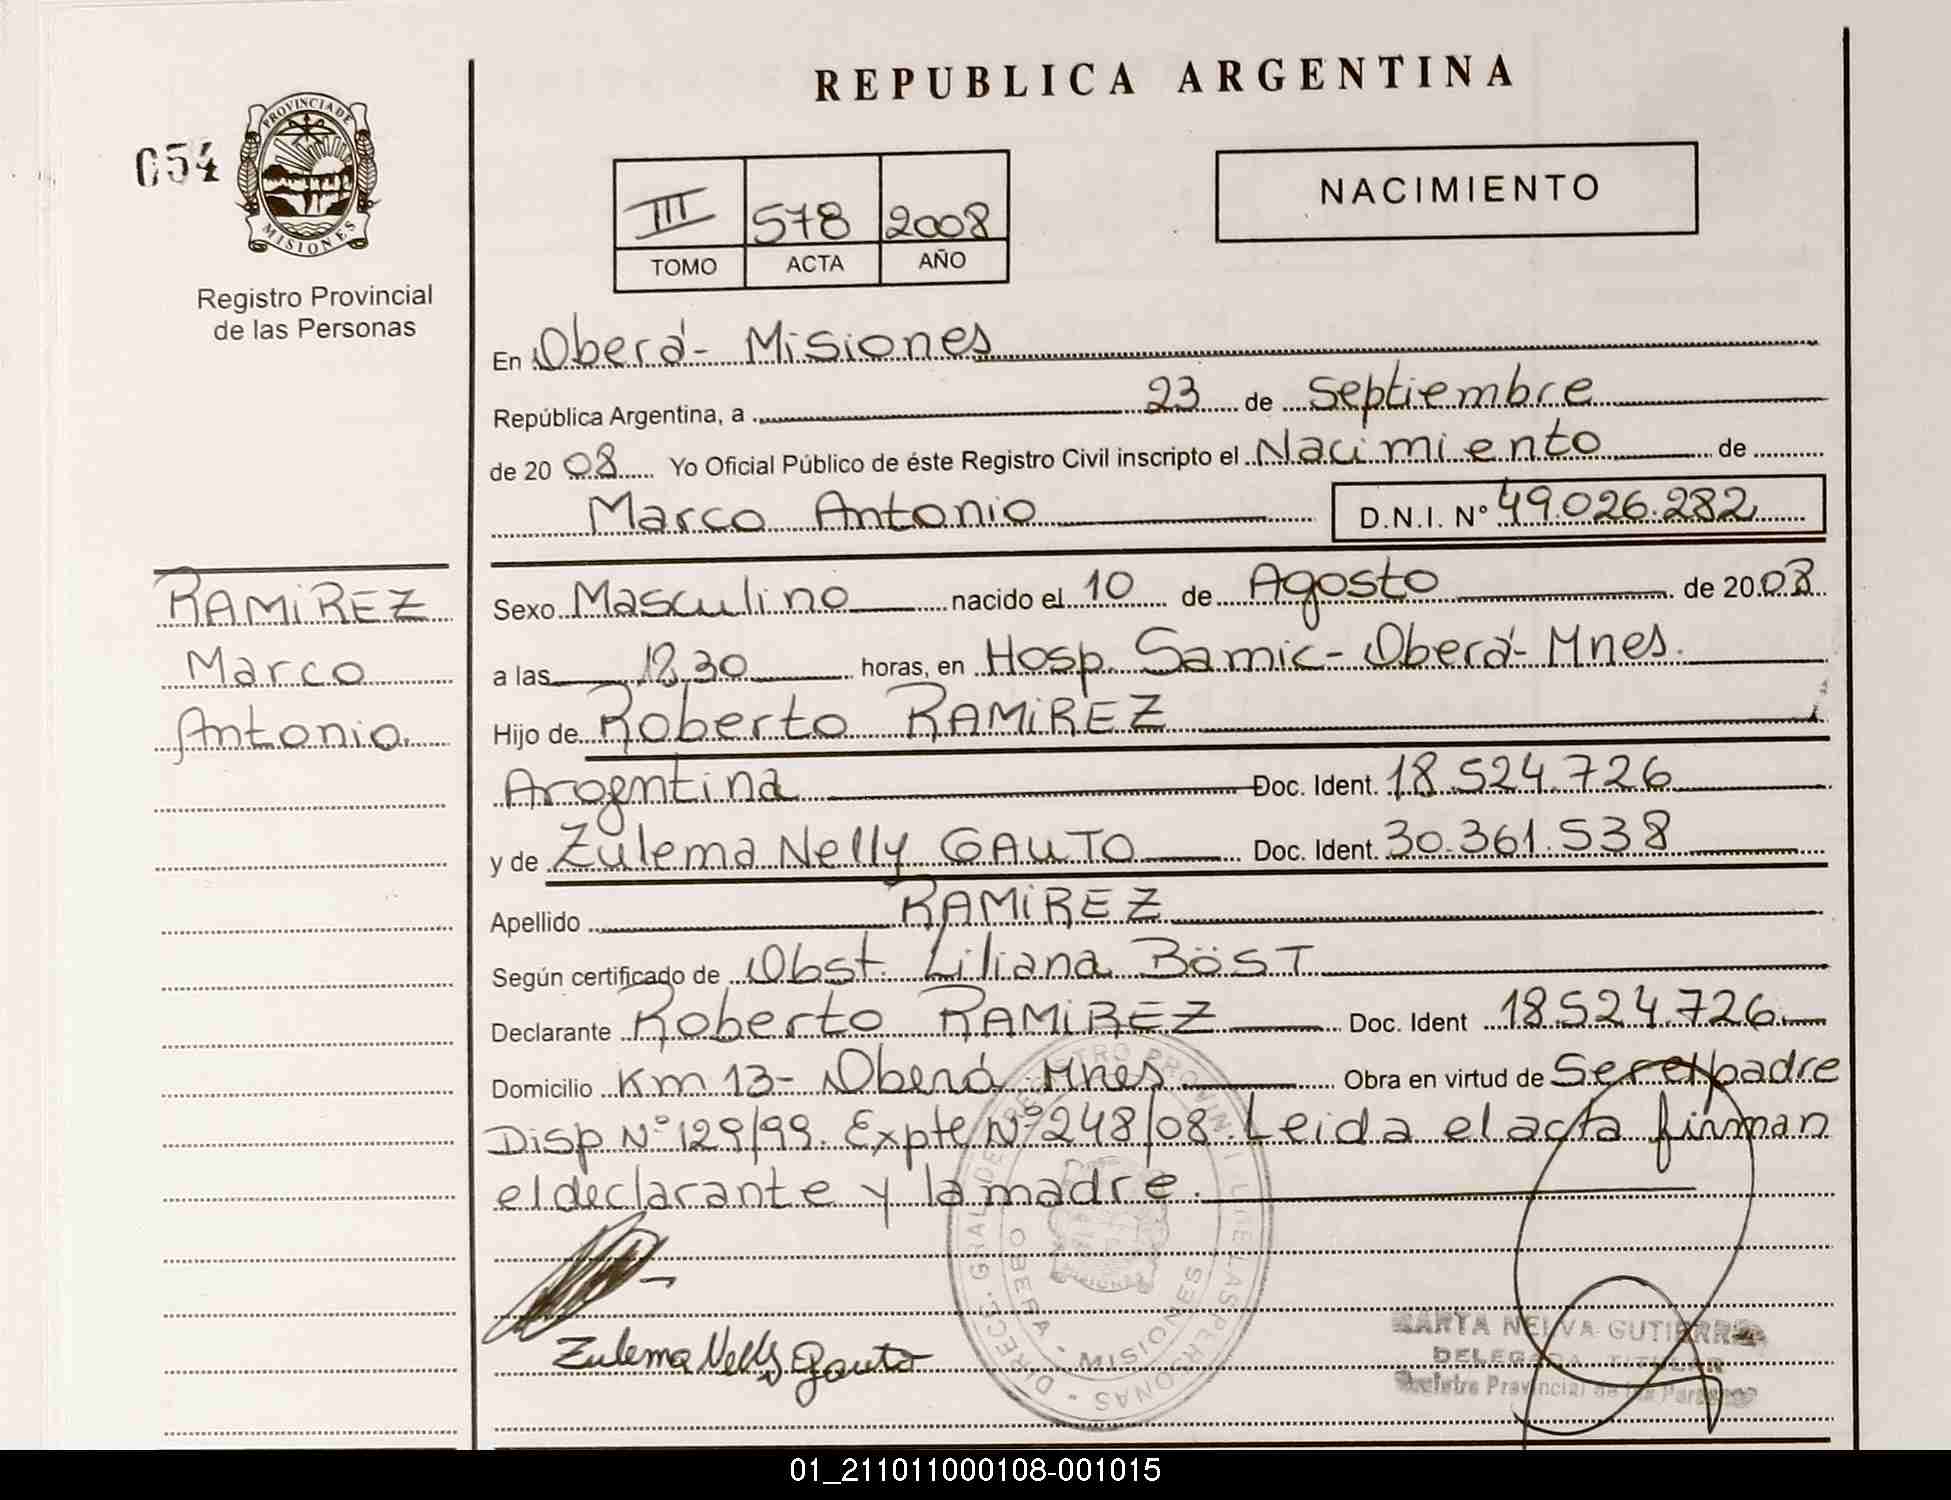 REPUBLICA ARGENTINA
054
PROVINCIA DE
MISIONES
Registro Provincial
de las Personas
III 578 2008
TOMO ACTA AÑO
NACIMIENTO
En Oberá - Misiones
República Argentina, a 23 de Septiembre
de 2008 Yo Oficial Público de éste Registro Civil inscripto el Nacimiento de
Marco Antonio D.N.I. Nº 49.026.282
RAMIREZ
Marco
Antonio.
Sexo Masculino nacido el 10 de Agosto de 2008
a las 12,30 horas, en Hosp. Samic - Oberá - Mnes.
Hijo de Roberto RAMIREZ
Argentina Doc. Ident. 18.524.726
y de Zulema Nelly GAUTO Doc. Ident. 30.361.538
Apellido RAMIREZ
Según certificado de Obst. Liliana BÖST
Declarante Roberto RAMIREZ Doc. Ident 18.524.726.
Domicilio Km 13 - Oberá Mnes Obra en virtud de Ser el padre
Disp Nº 129/99. Expte Nº 248/08. Leida el acta firman
el declarante y la madre.
Zulema Nelly Gauto
MARTA NELVA GUTIERREZ
DELEGADA TITULAR
Registro Provincial de las Personas
OBERA - MISIONES
01_211011000108-001015